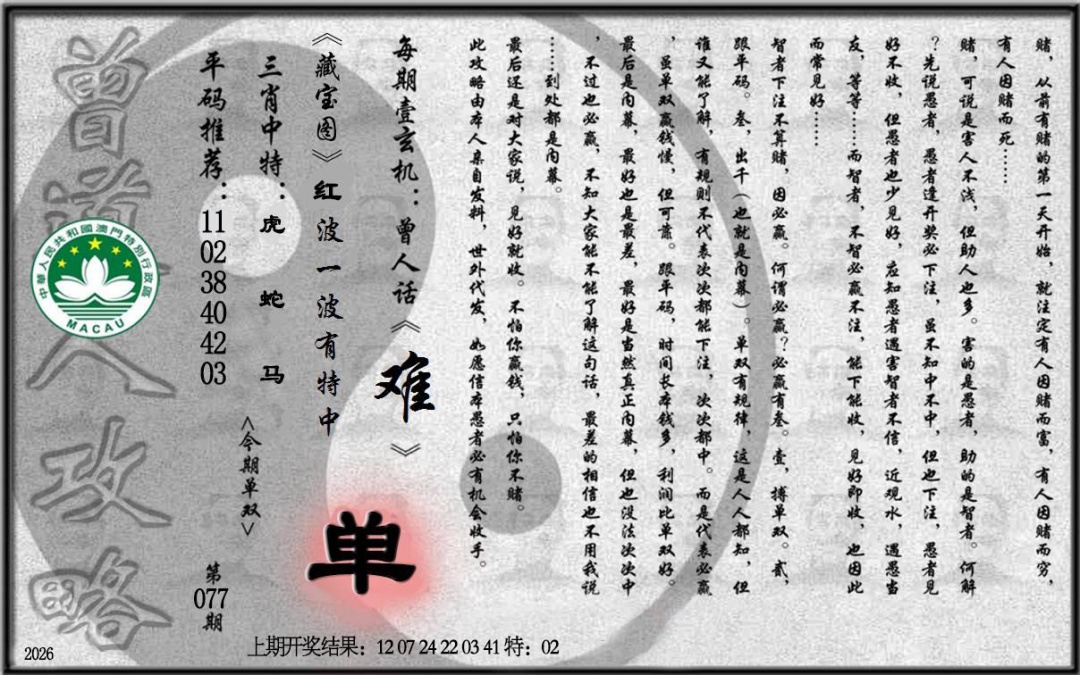 赌，从前有赌的第一天开始，就注定有人因赌而富，有人因赌而穷，
有人因赌而死……
赌，可说是害人不浅，但助人也多。害的是愚者，助的是智者。何解
？先说愚者，愚者逢开奖必下注，虽不知中不中，但也下注，愚者见
好不收，但愚者也少见好，应知愚者遇害智者不信，近观水，遇愚当
友，等等……而智者，不智必赢不注，能下能收，见好即收，也因此
而常见好……
智者下注不算赌，因必赢。何谓必赢？必赢有叁。壹，搏单双。贰，
跟平码。叁，出千（也就是内幕）。单双有规律，这是人人都知，但
谁又能了解，有规则不代表次次都能下注，次次都中。而是代表必赢
，虽单双赢钱慢，但可靠。跟平码，时间长本钱多，利润比单双好。
最后是内幕，最好也是最差，最好是当然真正内幕，但也没法次次中
，不过也必赢，不知大家能不能了解这句话，最差的相信也不用我说
……到处都是内幕。
最后还是对大家说，见好就收。不怕你赢钱，只怕你不赌。
此攻略由本人亲自发料，世外代发，如愿信本愚者必有机会收手。
每期壹玄机：曾人话《难》
《藏宝图》红波一波有特中
单
三肖中特：虎 蛇 马
<今期单双>
平码推荐：11 02 38 40 42 03
第077期
曾道人攻略
中華人民共和國澳門特別行政區
MACAU
上期开奖结果：12 07 24 22 03 41 特：02
2026